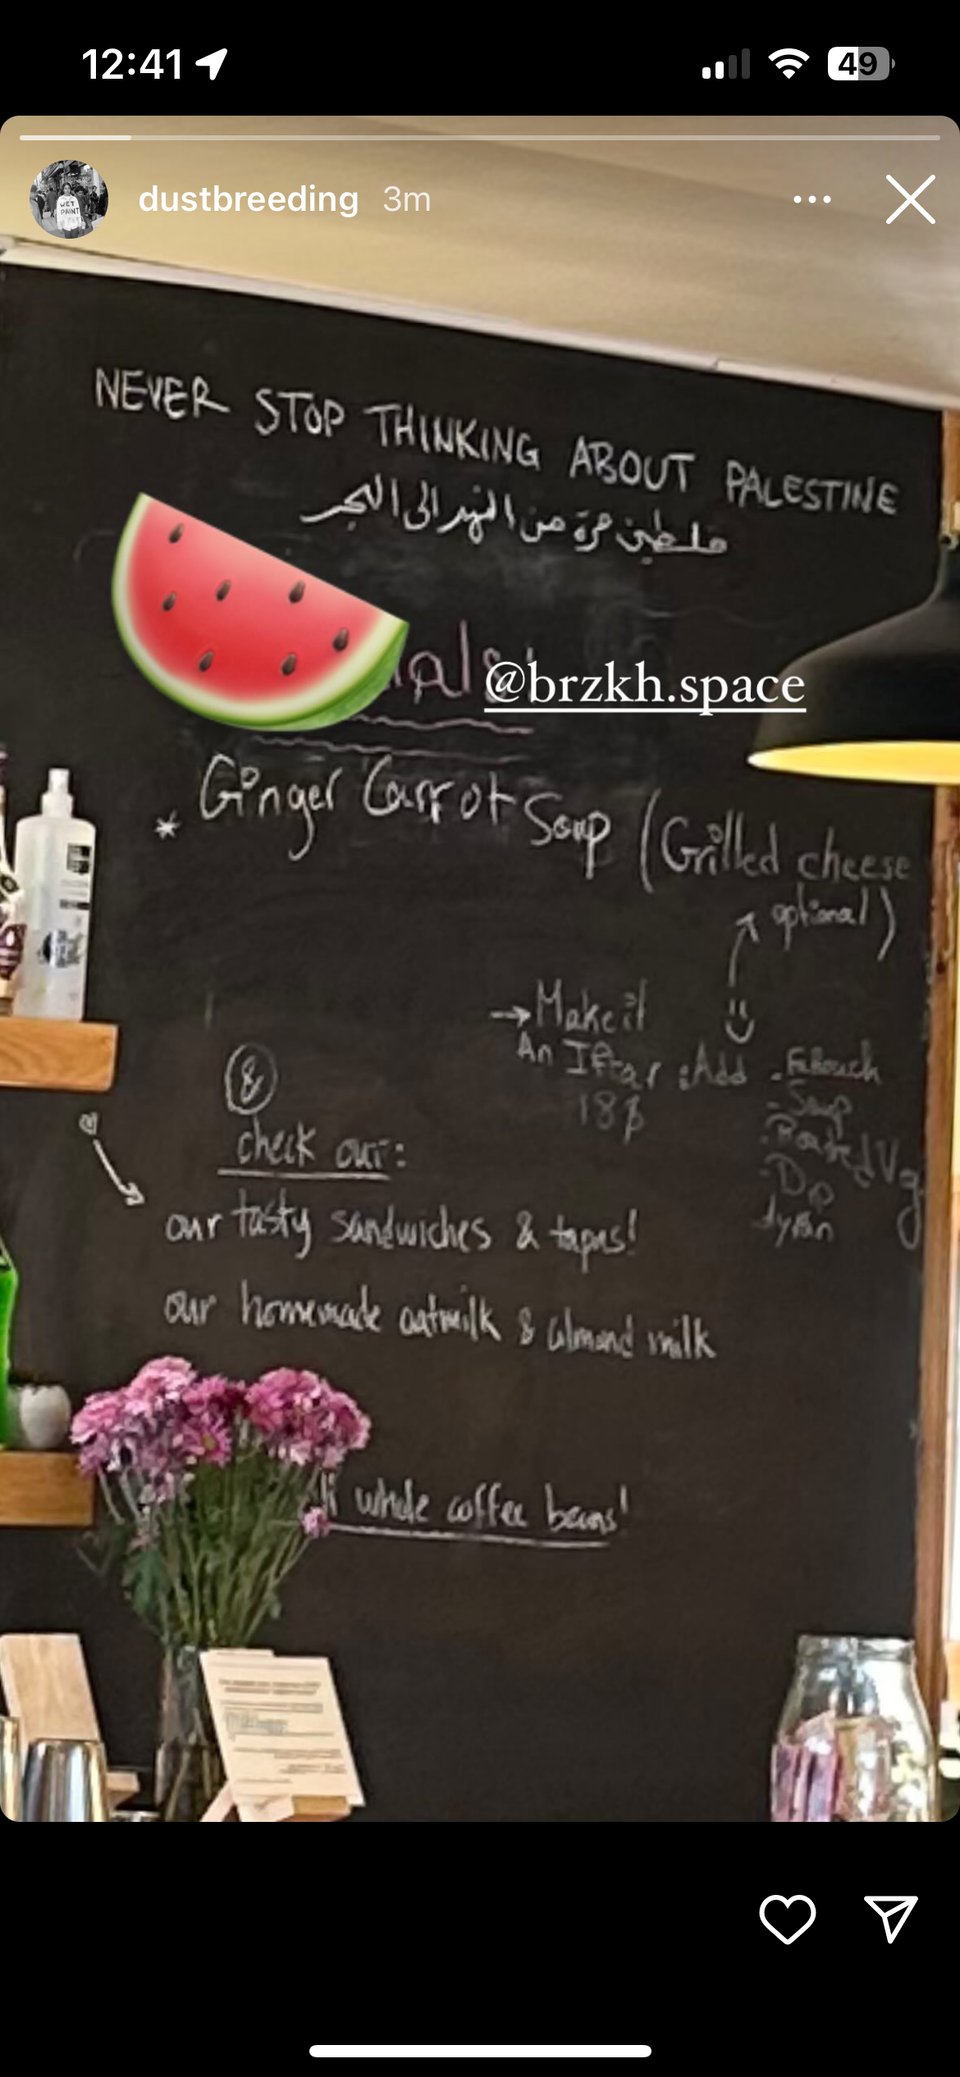 12:41
49
dustbreeding 3m
WET PAINT
NEVER STOP THINKING ABOUT PALESTINE
فلسطين حرة من النهر الى البحر
@brzkh.space
* Ginger Carrot Soup (Grilled cheese
optional)
→ Make it
An Iftar : Add
18$
- Soup
&
check our:
our tasty sandwiches & tapas!
our homemade oatmilk & almond milk
whole coffee beans!